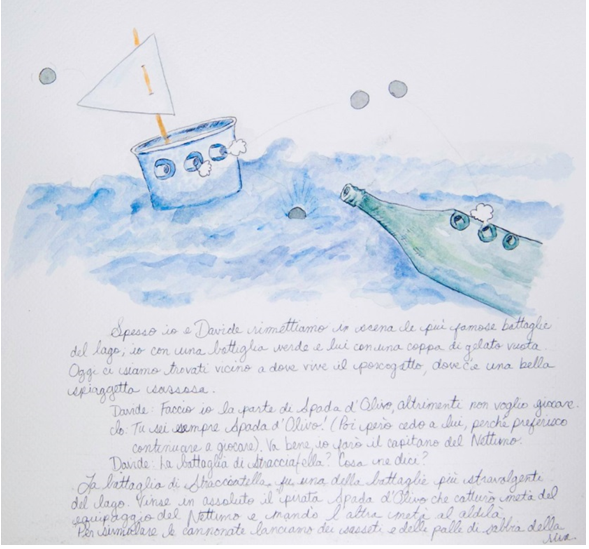 Spesso io e Davide rimettiamo in scena le più famose battaglie
del lago, io con una bottiglia verde e lui con una coppa di gelato vuota.
Oggi ci siamo trovati vicino a dove vive il porcogatto, dove c'è una bella
spiaggetta sassosa.
Davide: Faccio io la parte di Spada d'Olivo, altrimenti non voglio giocare.
Io: Tu sei sempre Spada d'Olivo! (Poi però cedo a lui, perché preferisco
continuare a giocare). Va bene, io farò il capitano del Nettuno.
Davide: La battaglia di Stracciatella? Cosa ne dici?
La battaglia di Stracciatella fu una della battaglie più stravalgente
del lago. Vinse in assoluto il pirata Spada d'Olivo che catturò metà del
equipaggio del Nettuno e mandò l'altra metà al aldilà.
Per simulare le cannonate lanciamo dei sassetti e delle palle di sabbia della
riva.